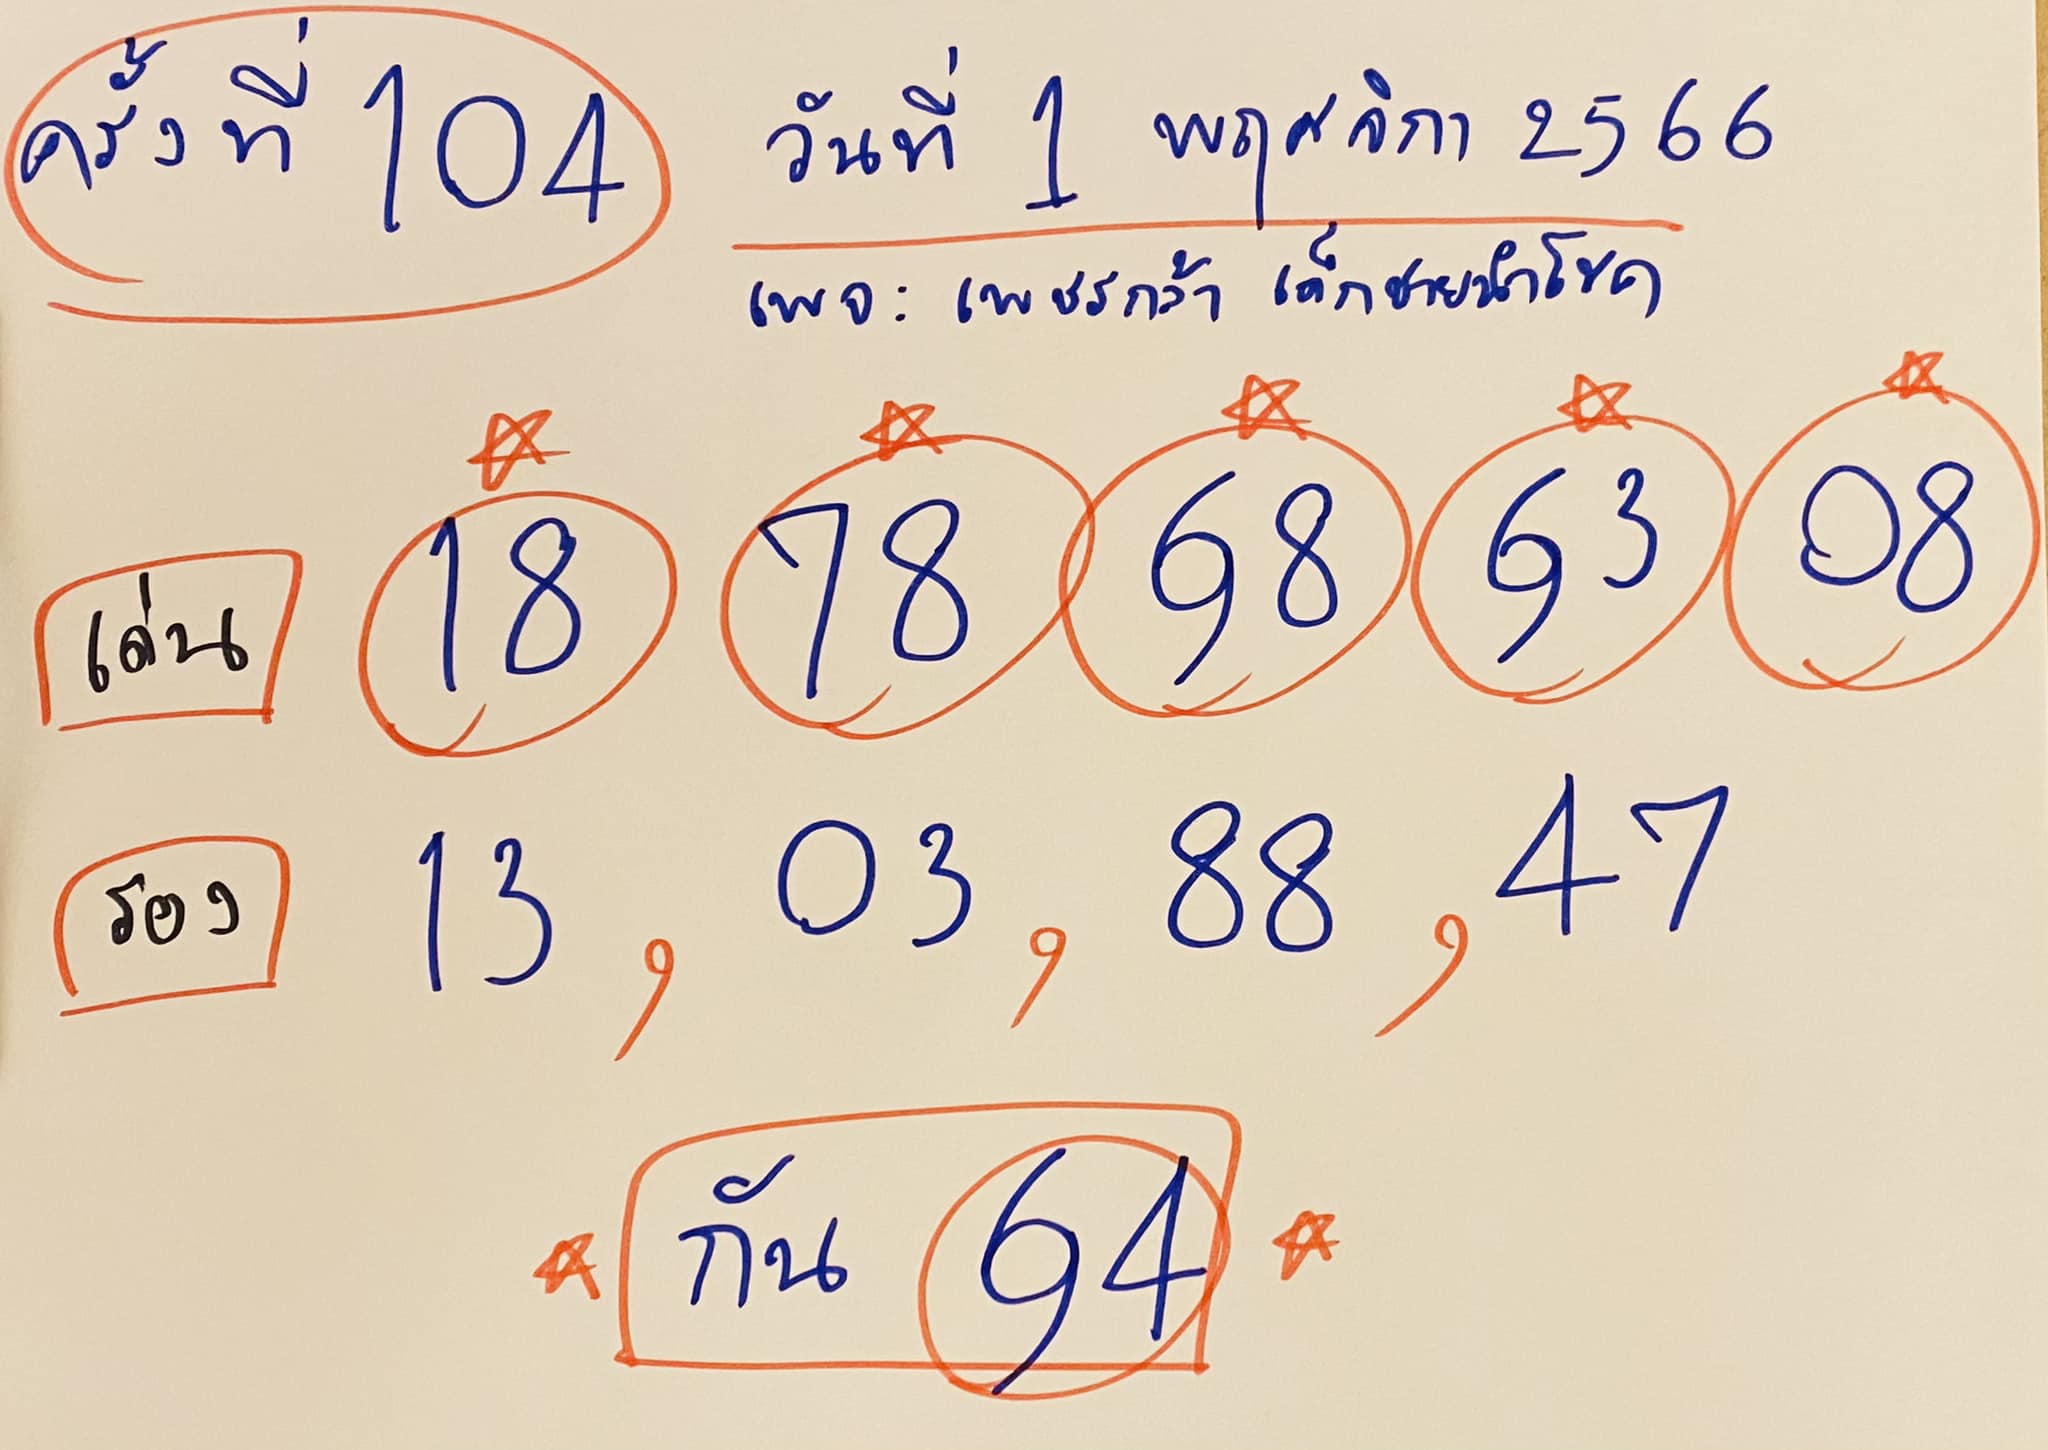 ครั้งที่ 104 วันที่ 1 พฤศจิกา 2566
เพจ: เพชรกล้า เด็กชายนำโชค
เด่น 18 78 98 93 08
รอง 13, 03, 88, 47
กัน 94